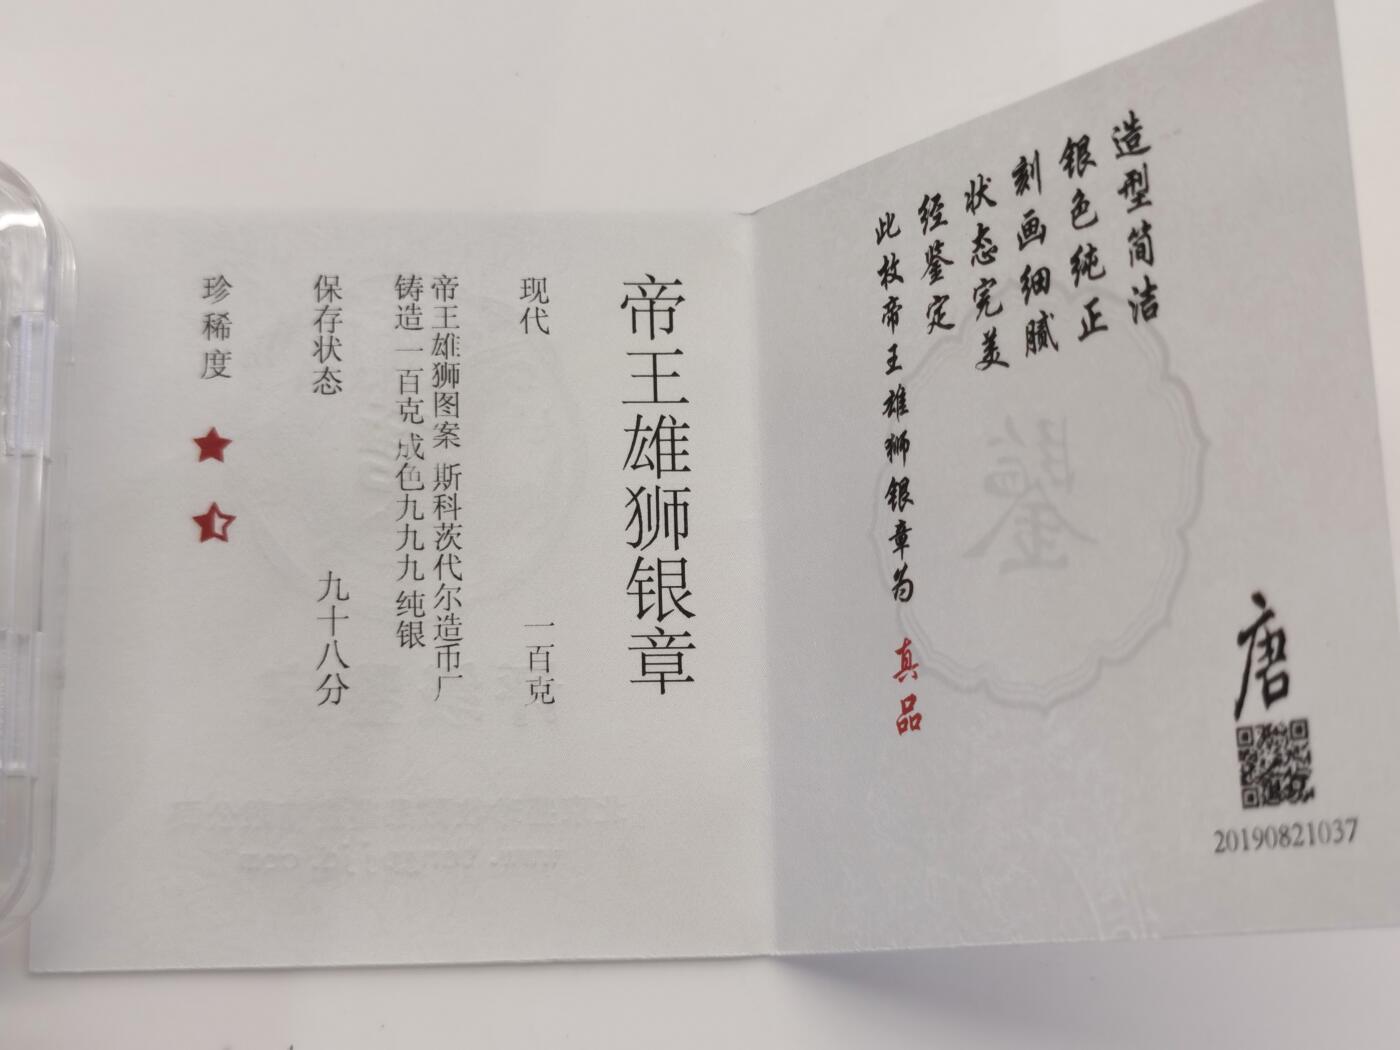 造型简洁
银色纯正
刻画细腻
状态完美
经鉴定
此枚帝王雄狮银章为 真品
唐
20190821037
鉴
帝王雄狮银章
现代 一百克
帝王雄狮图案 斯科茨代尔造币厂
铸造 一百克 成色九九九 纯银
保存状态 九十八分
珍稀度